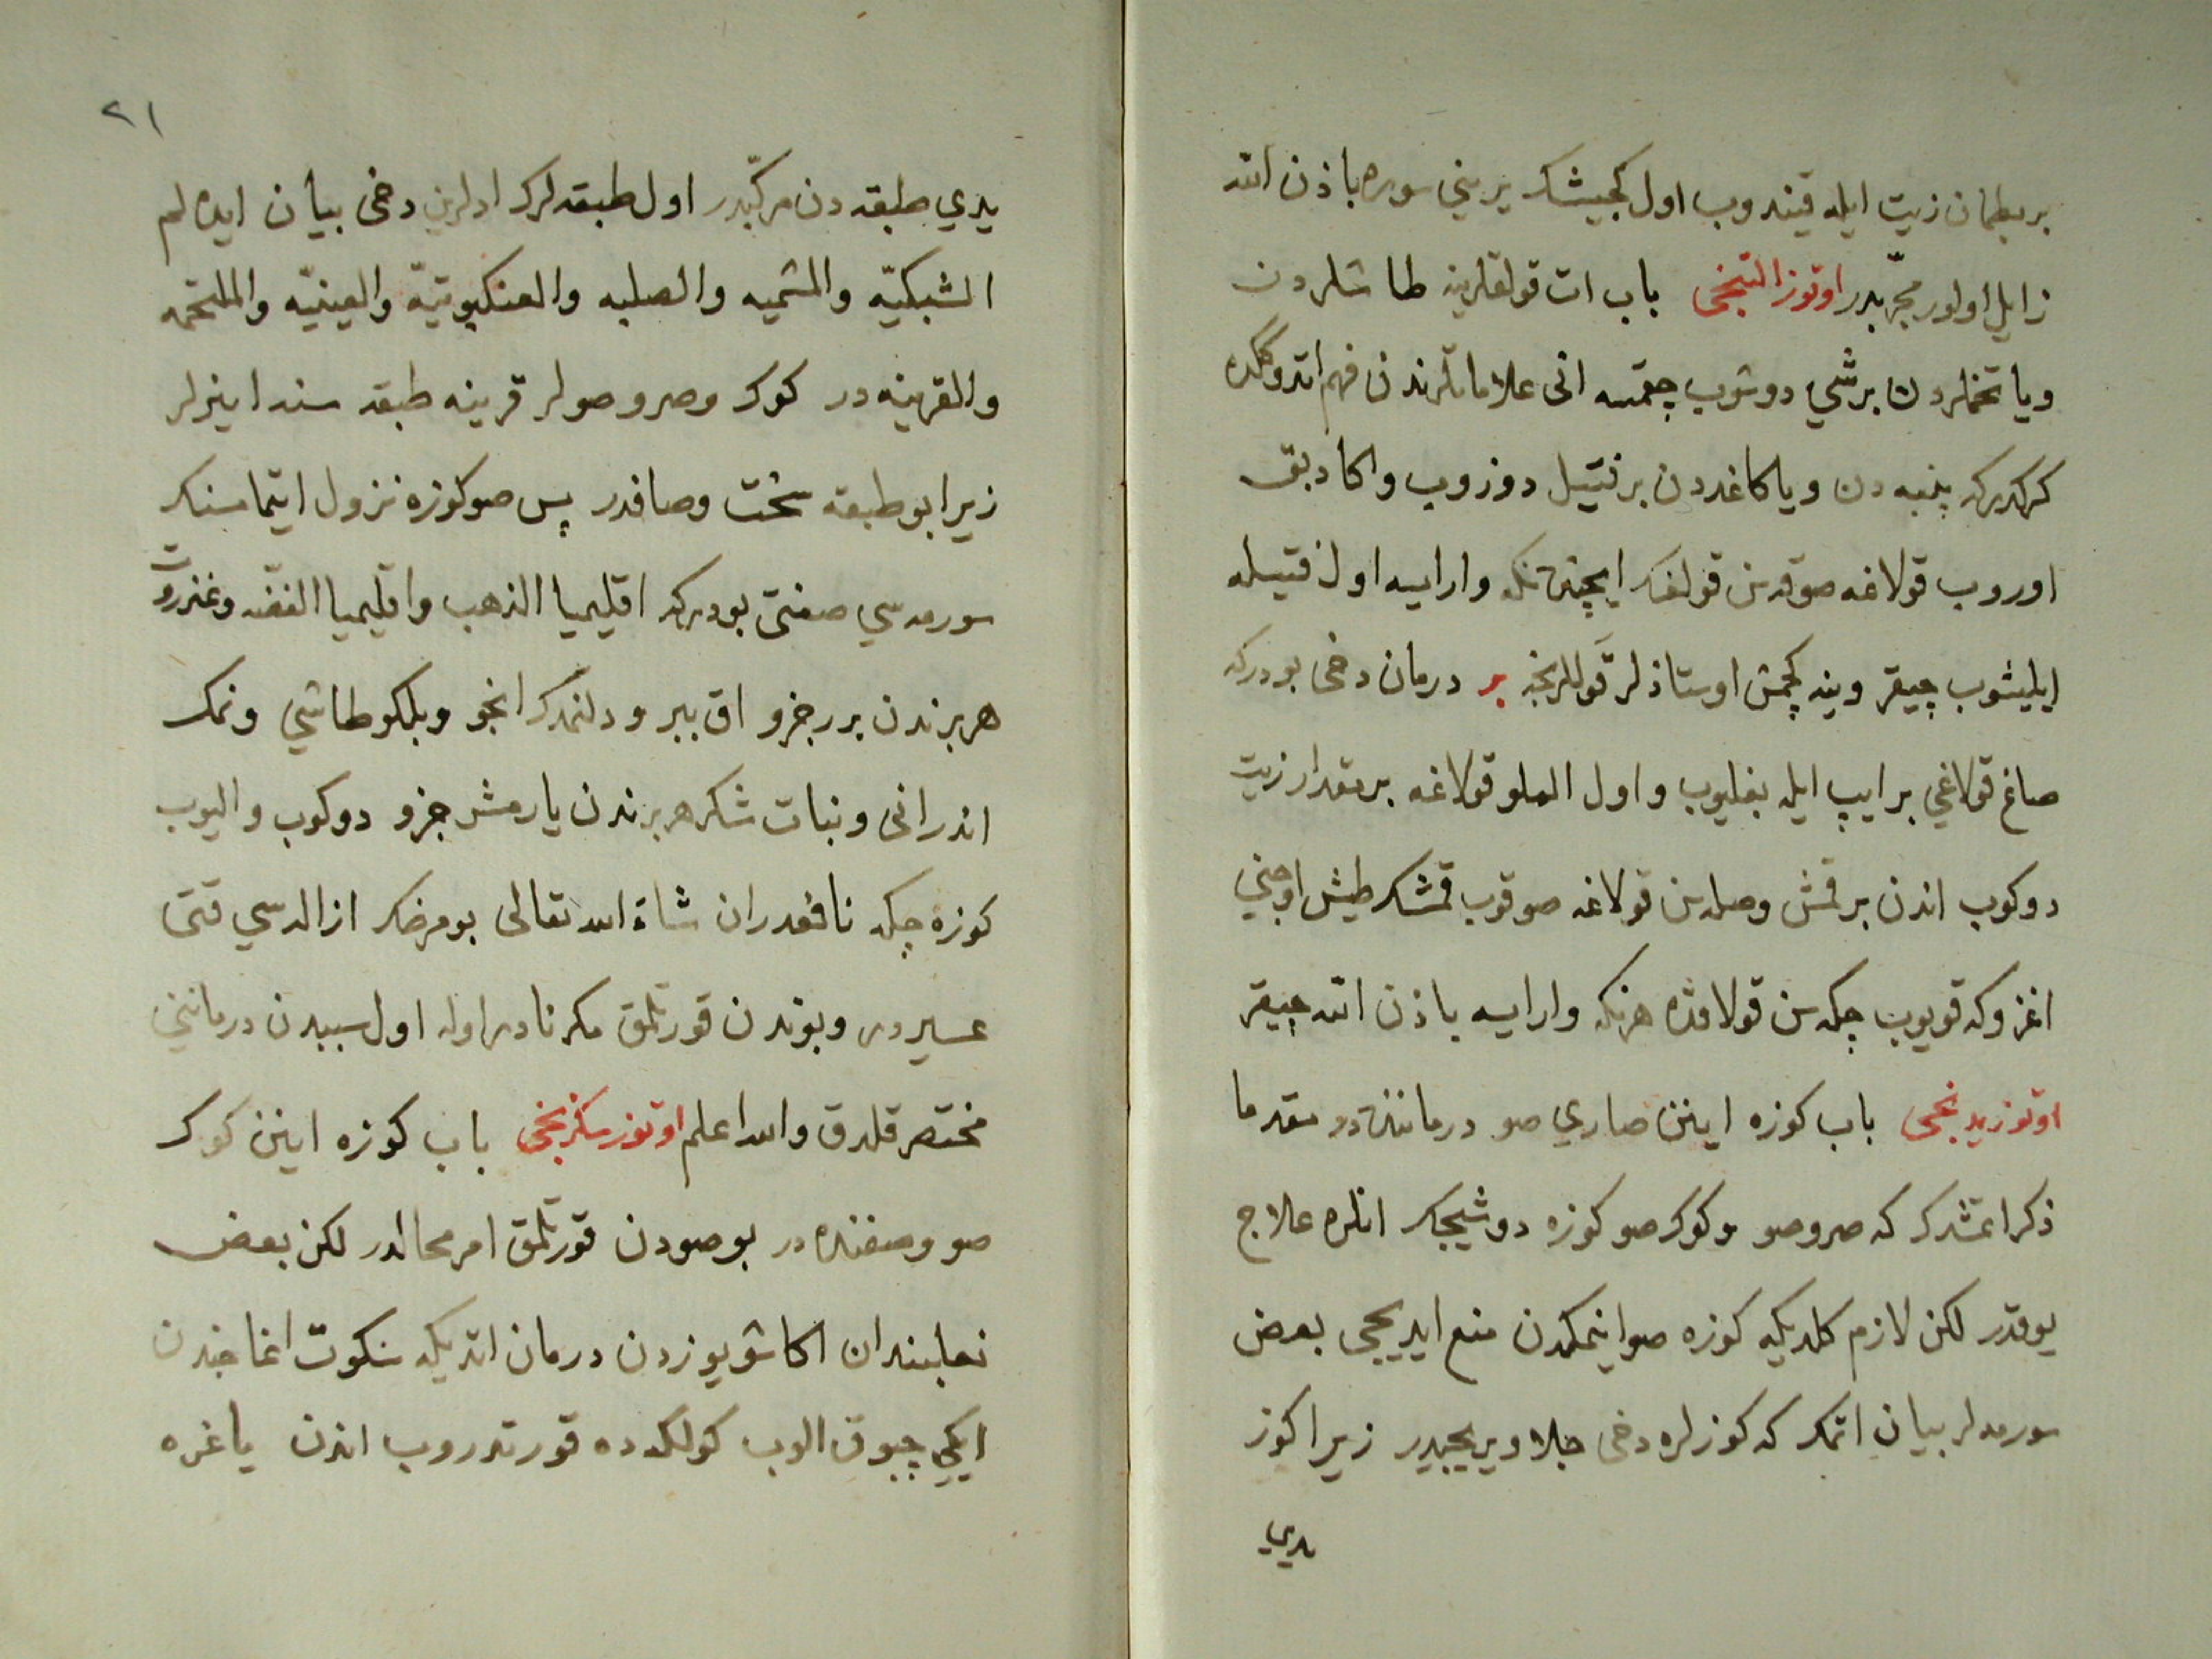 بر بطمان زيت ايله قيندوب اول كجيشك يريني سوره باذن الله
زايل اولور مجرّبدر اوتوز التنجى باب ات قولقلرينه طاشلردن
ويا تخملردن برشي دوشوب چقمسه انى علاماتلرندن فهم اتدوكلده
كركدركه پنبه دن ويا كاغددن بر فتيل دوزوب واكا دبق
اوروب قولاغه صوقه سن قولغك ايچنده نكه وار ايسه اول فتيله
ايليشوب چيقر وينه كچمش اوستاذلر قوللرنجه بر درمان دخى بودركه
صاغ قولاغي بر ايپ ايله بغليوب واول الملو قولاغه بر مقدار زيت
دوكوب اندن بر قمش وصله سن قولاغه صوقوب قمشك طيش اوجني
اغزوكه قويوب چكه سن قولاقده هرنكه وار ايسه باذن الله چيقر
اوتوز يدنجى باب كوزه اينن صاري صو درماننده در مقدما
ذكر اتمشدك كه صرو صو وكوك صو كوزه دوشيجك انلره علاج
يوقدر لكن لازم كلديكه كوزه صو اينمكدن منع ايديجى بعض
سورمه لر بيان اتمك كه كوزلره دخى جلا ويريجيدر زيرا كوز
يدي
٢١
يدي طبقه دن مركّبدر اول طبقه لرك ادلرين دخى بيان ايده لم
الشبكيّه والمشميه والصلبه والعنكبوتيّه والعينيّه والملتحمه
والقرنيه در كوك وصرو صولر قرينه طبقه سندا اينرلر
زيرا بو طبقه سخت وصافدر پس صو كوزه نزول ايتمامسنك
سورمه سي صفتى بودركه اقليميا الذهب واقليميا الفضّه وعنزروت
هر برندن برر جزو اق ببر ودلنمدك انجو وبلكو طاشي ونمك
اندرانى ونبات شكر هر برندن يارمشر جزو دوكوب واليوب
كوزه چكه نافعدر ان شاء الله تعالى بو مرضك ازاله سي قتى
عسيردر وبوندن قورتلمق مكر نادر اوله اول سببدن درمانني
مختصر قلدق والله اعلم اوتوز سكزنجى باب كوزه اينن كوك
صو وصفنده در بو صودن قورتلمق امر محالدر لكن بعض
نعلبندان اكا شو يوزدن درمان اتديكه سكوت اغاجندن
ايكي چبوق الوب كولكه ده قورتدروب اندن ياغره